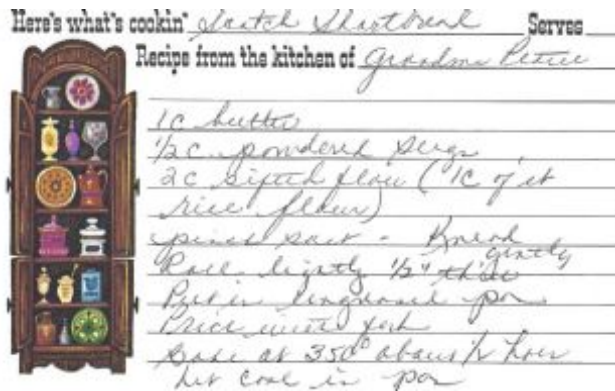 Here's what's cookin' Scotch Shortbread Serves
Recipe from the kitchen of Grandma
1c butter
1/2 c powdered sugr
2c sifted flour (1c of it
rice flour)
pinch salt - Knead
gently
Roll lightly 1/2" thick
Put in ungreased pan
Price with fork
Bake at 350° about 1/2 hour
let cool in pan